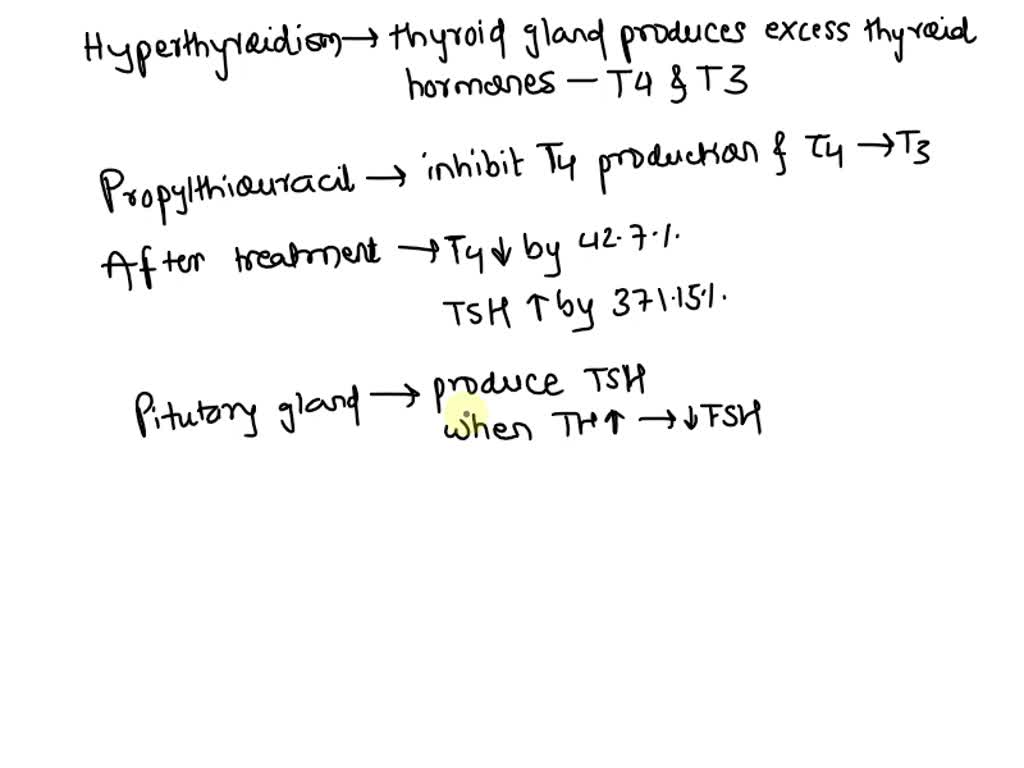 Hyperthyroidism → thyroid gland produces excess thyroid
hormones – T4 & T3
Propylthiouracil → inhibit T4 production & T4 → T3
After treatment → T4 ↓ by 42.7%.
TSH ↑ by 371.15%.
Pitutary gland → produce TSH
when TH ↑ → ↓ TSH